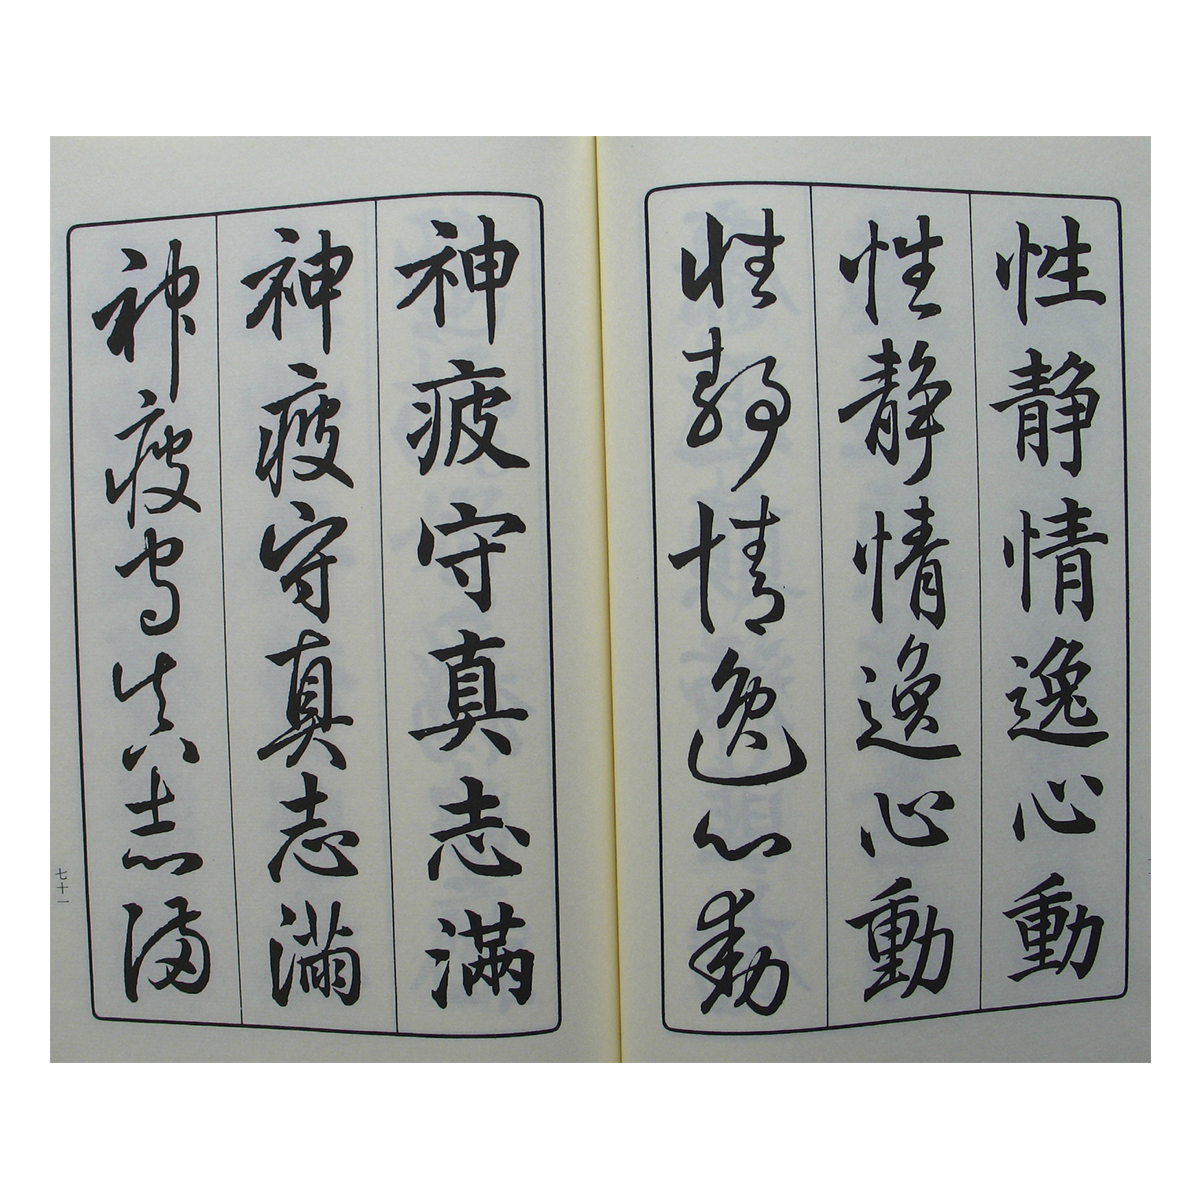 性静情逸心動
性静情逸心動
性静情逸心動
神疲守真志滿
神疲守真志滿
神疲守真志滿
七十一